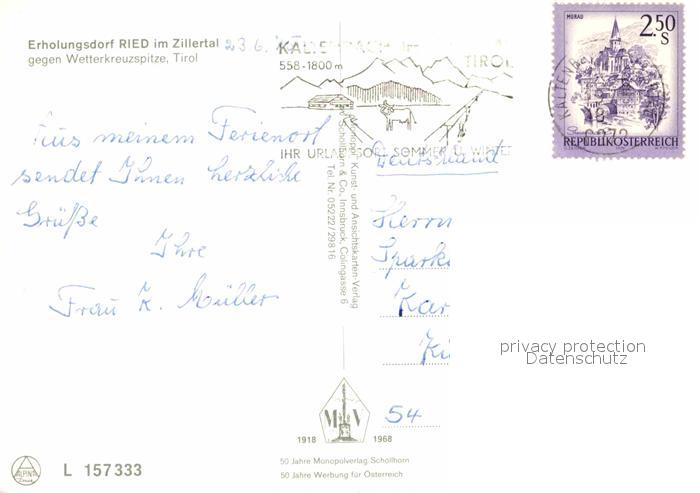 Erholungsdorf RIED im Zillertal
gegen Wetterkreuzspitze, Tirol
23.6.
KALTENBACH im
558-1800 m
TIROL
IHR URLAUBSORT SOMMER U. WINTER
MURAU
2.50
S
REPUBLIK ÖSTERREICH
6272
Aus meinem Ferienort
sendet Ihnen herzliche
Grüße
Ihre
Frau K. Müller
Monopol, Kunst- und Ansichtskarten-Verlag
Schöllhorn & Co., Innsbruck, Colingasse 6
Tel. Nr. 05222/29816
Deutschland
Herrn
Spark
Kar
Ki
54
privacy protection
Datenschutz
M V
1918 1968
50 Jahre Monopolverlag Schöllhorn
50 Jahre Werbung für Österreich
ALPINA
L 157333